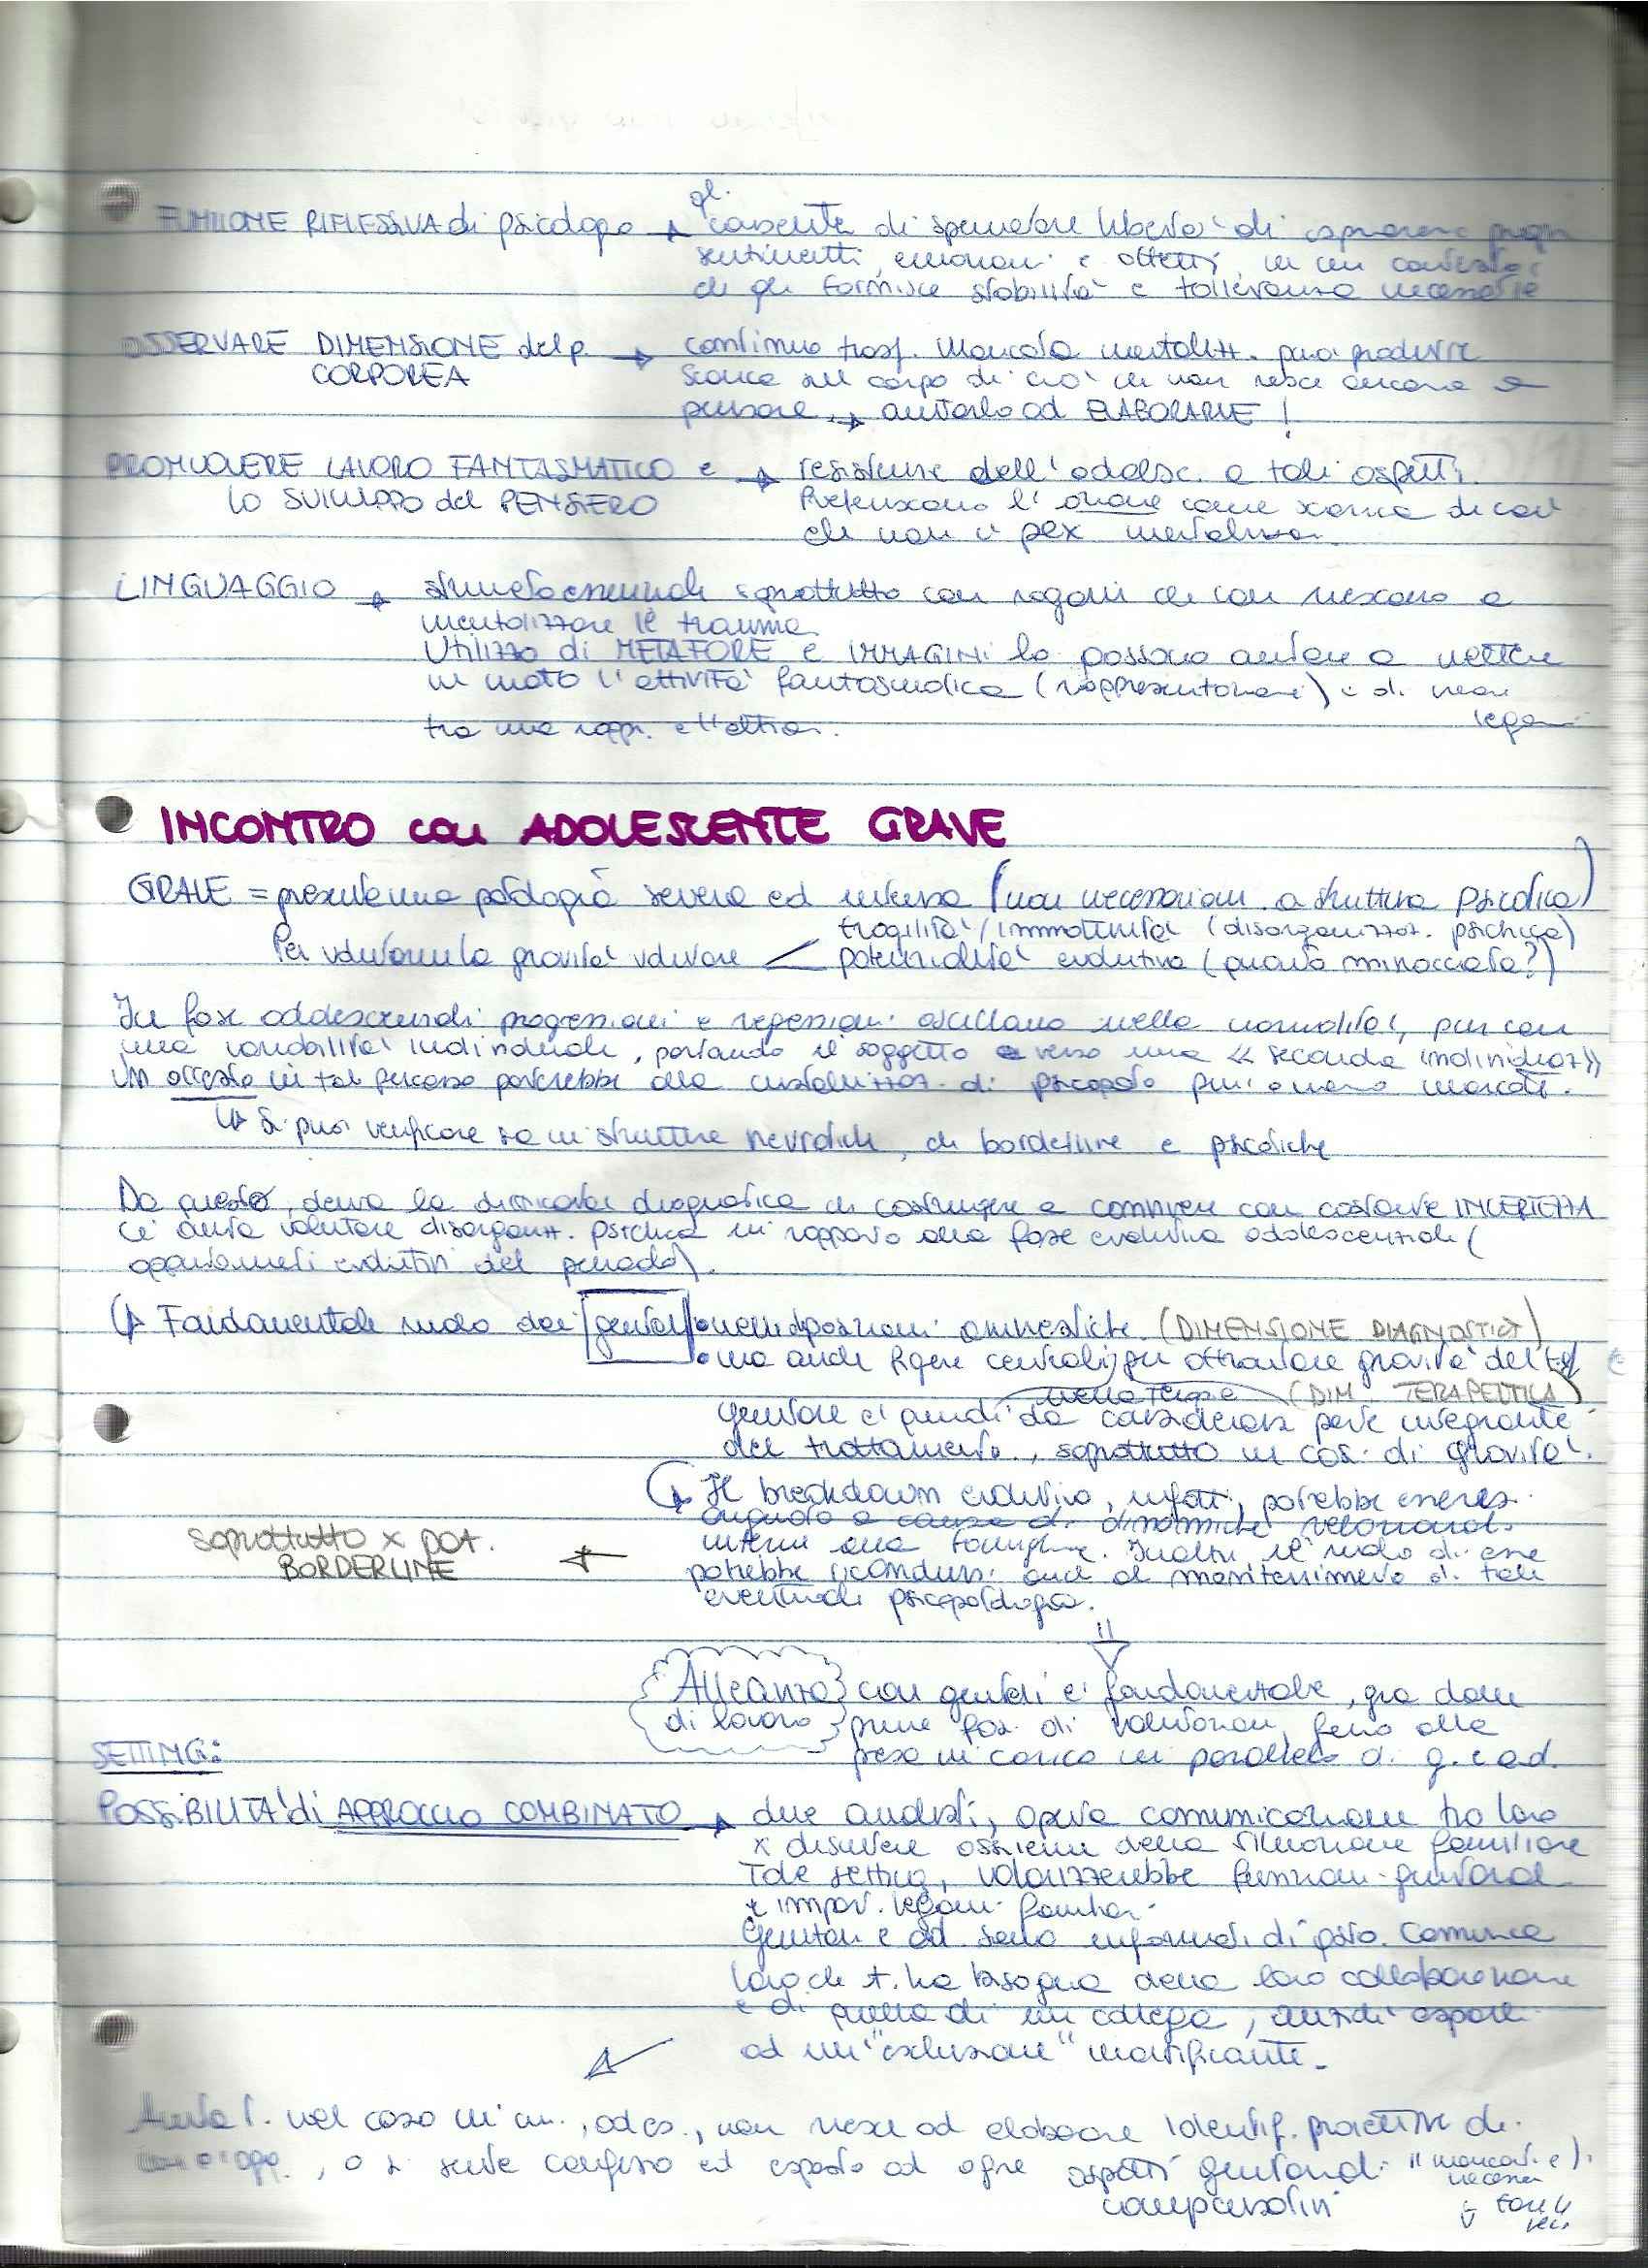 FUNZIONE RIFLESSIVA di psicologo → gli consente di sperimentare libertà di esprimere propri
sentimenti, emozioni e affetti, in un contesto
che gli fornisce stabilità e tolleranza necessarie
OSSERVARE DIMENSIONE del p. → continuo trasf. mancata mentalizz. può produrre
CORPOREA
scarica sul corpo di ciò che non riesce ancora a
pensare → aiutarlo ad ELABORARLE!
PROMUOVERE LAVORO FANTASMATICO e → resistenze dell'adolesc. a tali aspetti.
lo SVILUPPO del PENSIERO
Preferiscono l'azione come scarica di ciò
che non è mentalizzato
LINGUAGGIO → strumento essenziale soprattutto con ragazzi che non riescono a
mentalizzare il trauma
Utilizzo di METAFORE e IMMAGINI lo possono aiutare a mettere
in moto l'attività fantasmatica (rappresentazioni) e di
legami
tra una rappr. e l'altra.
INCONTRO con ADOLESCENTE GRAVE
GRAVE = presenta una patologia severa ed intensa (non necessariam. a struttura psicotica)
fragilità / immaturità (disorganizzaz. psichica)
Per valutarne la gravità valutare < potenzialità evolutiva (quanto minacciata?)
In fase adolescenziale progressioni e regressioni oscillano nella normalità, pur con
una variabilità individuale, portando il soggetto verso una << seconda individuaz>>
Un arresto in tal percorso porterebbe alla cristallizzaz. di psicopato più o meno marcate.
↳ Si può verificare sia in strutture nevrotiche, che borderline e psicotiche
Da questo, deriva la difficoltà diagnostica che costringe a convivere con costante INCERTEZZA
(è anche valutare disorganizz. psichica in rapporto alla fase evolutiva adolescenziale (
appuntamenti evolutivi del periodo).
↳ Fondamentale ruolo dei genitori • nelle deposizioni amnestiche (DIMENSIONE DIAGNOSTICA)
• ma anche figure centrali per affrontare gravità del
nella terapia (DIM. TERAPEUTICA)
genitore è quindi da considerarsi parte integrante
del trattamento, soprattutto in casi di gravità.
↳ Il breakdown evolutivo, infatti, potrebbe essersi
originato a causa di dinamiche relazionali
soprattutto x pat.
BORDERLINE ←
interne alla famiglia. Inoltre, il ruolo di esse
potrebbe ricondursi anche al mantenimento di tale
eventuale psicopatologia.
Alleanza di lavoro con genitori è fondamentale, già dalle
prime fasi di valutazione, fino alla
presa in carico in parallelo di g. e ad.
SETTING:
POSSIBILITÀ di APPROCCIO COMBINATO → due analisti, opera comunicazione tra loro
x discutere assieme della situazione familiare
Tale setting, valorizzerebbe funzioni genitoriali
e impor. legami familiari.
Genitori e ad. sono informati di questo. Comunica
loro che t. ha bisogno della loro collaborazione
e di quella di un collega, quindi esporli
ad un "esclusione" mortificante.
nel caso in cui, ad es., non riesce ad elaborare identif. proiettive di
, o si sente confuso ed esposto ad agire aspetti genitoriali
compensativi